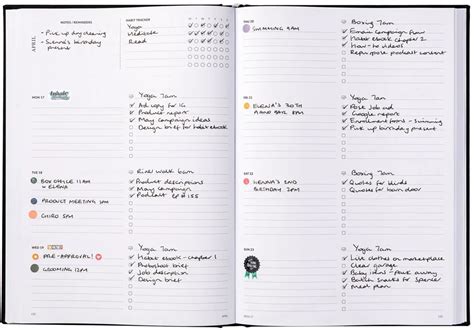 APRIL
NOTES / REMINDERS
- Pick up dry cleaning
- Sienna's birthday
present
HABIT TRACKER
Yoga
Meditate
Read
MON 17
Yoga 7am
Ad copy for IG
Product report
May campaign ideas
Design brief for habit ebook
TUE 18
BOX OFFICE 11AM
w ELENA
PRODUCT MEETING 3AM
CHIRO 5AM
Ride work 6am
Product descriptions
May Campaign
Podcast EP #155
WED 19
PRE-APPROVAL!
GLOOMING 12PM
Yoga 7am
Habit ebook - chapter 1
Photoshoot brief
Job description
Design brief
THU 20
SWIMMING 9AM
Boxing 7am
Email campaign flow
Habit ebook chapter 2
How-to videos
Repurpose podcast content
FRI 21
ELENA'S 30TH
PIANO BAR 7PM
Yoga 7am
Pose job ad
Google report
Enrolment forms - swimming
Pick up birthday present
SAT 22
SIENNA'S 2ND
BIRTHDAY 3PM
Boxing 7am
Quotes for blinds
Quotes for barn door
SUN 23
Yoga 7am
List clothes on marketplace
Clear garage
Baby items - pack away
Batch snacks for Spencer
Meal plan